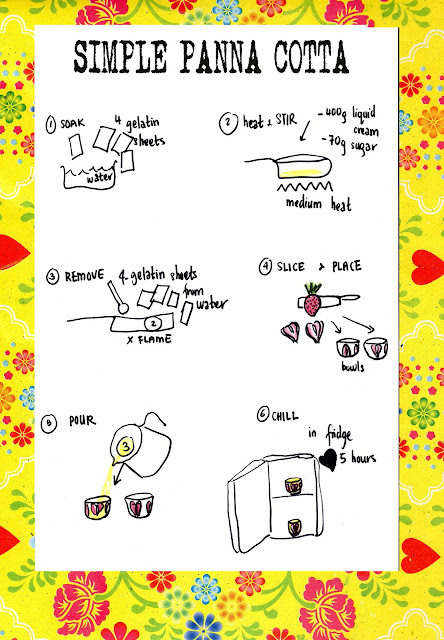 SIMPLE PANNA COTTA
1 SOAK
4 gelatin
sheets
water
2 heat & STIR
- 400g liquid
cream
- 70g sugar
medium heat
3 REMOVE 4 gelatin sheets
from
water
2
X FLAME
4 SLICE & PLACE
bowls
5 POUR
3
6 CHILL
in fridge
5 hours